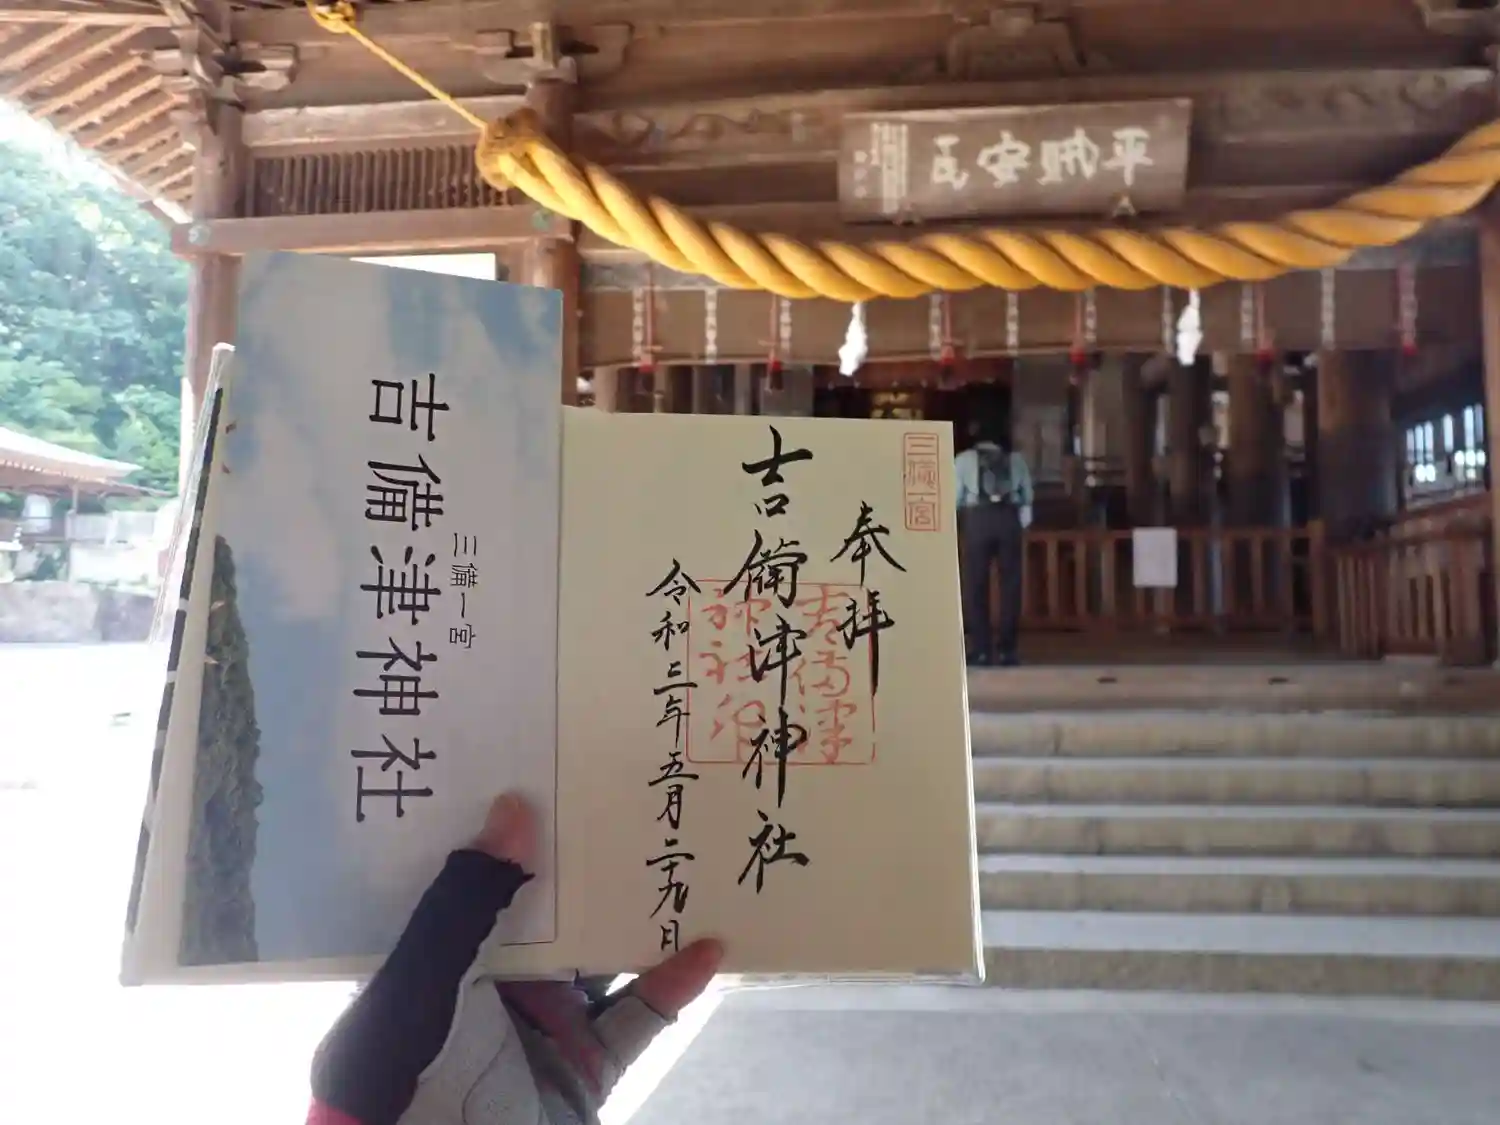 平賊安民
三備一宮
吉備津神社
三備一宮
奉拝
吉備津神社
吉備津
神社印
令和三年五月二十九日